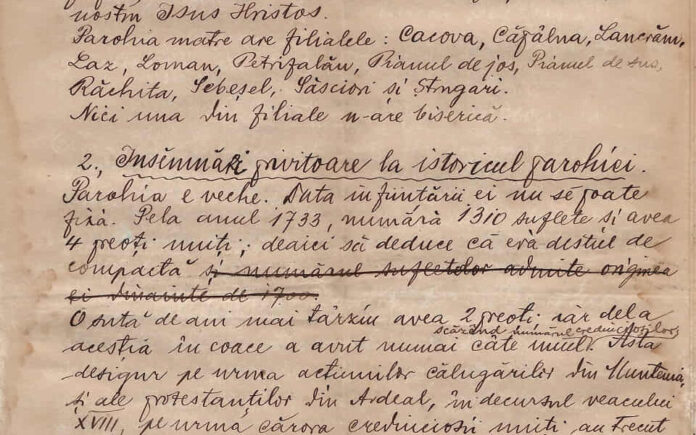 nostru Isus Hristos.
Parohia matre are filialele: Cacova, Căpâlna, Lancrăm,
Laz, Loman, Petrifalău, Pianul de jos, Pianul de sus,
Răchita, Sebeșel, Săsciori si Șugari.
Nici una din filiale n-are biserică.
2., Însemnări privitoare la istoricul parohiei.
Parohia e veche. Data înfiintării ei nu se poate
fixă. Pela anul 1733, numără 1310 suflete si avea
4 preoți uniți; deaici să deduce că eră destul de
compactă și numărul sufletelor admite originea
ei dinainte de 1700.
O sută de ani mai târziu avea 2 preoți iar dela
scăzând numărul credincioșilor
aceștia în coace a avut numai câte unul. Asta
desigur pe urma actiunilor călugărilor din Muntenia,
și ale protestanților din Ardeal, în decursul veacului
XVIII, pe urma cărora credincioșii uniți au trecut